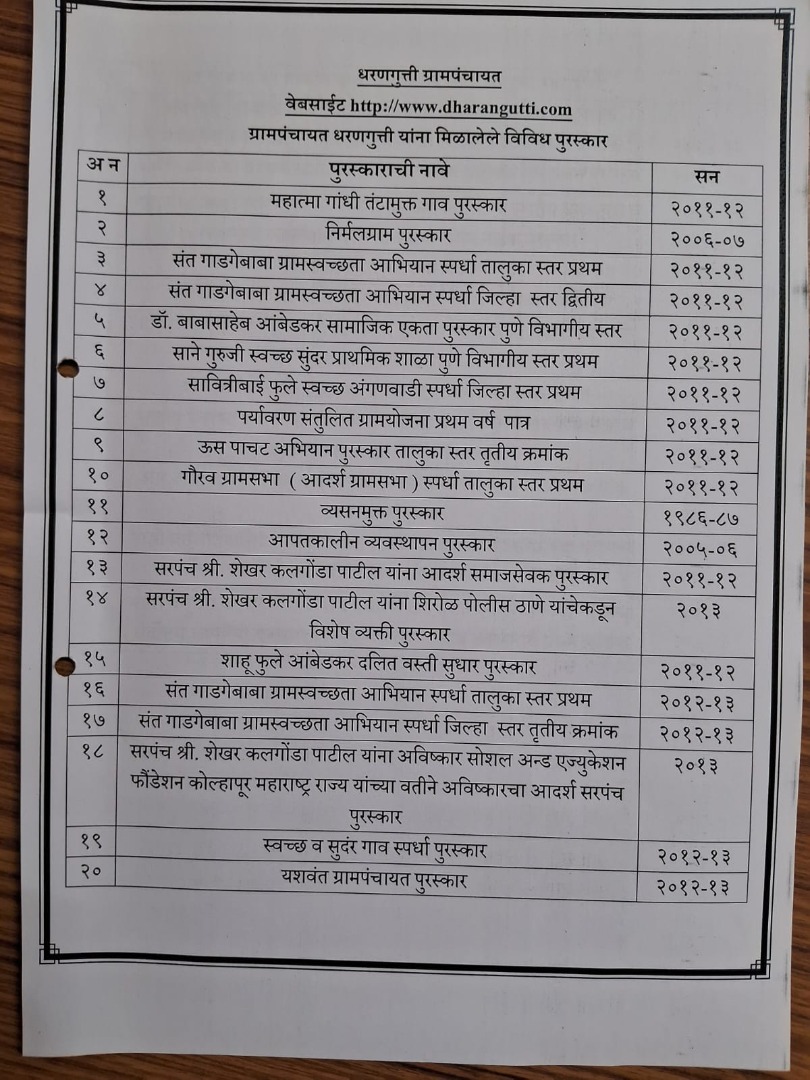 धरणगुत्ती ग्रामपंचायत
वेबसाईट http://www.dharangutti.com
ग्रामपंचायत धरणगुत्ती यांना मिळालेले विविध पुरस्कार
अ न पुरस्काराची नावे सन
१ महात्मा गांधी तंटामुक्त गाव पुरस्कार २०११-१२
२ निर्मलग्राम पुरस्कार २००६-०७
३ संत गाडगेबाबा ग्रामस्वच्छता आभियान स्पर्धा तालुका स्तर प्रथम २०११-१२
४ संत गाडगेबाबा ग्रामस्वच्छता आभियान स्पर्धा जिल्हा स्तर द्वितीय २०११-१२
५ डॉ. बाबासाहेब आंबेडकर सामाजिक एकता पुरस्कार पुणे विभागीय स्तर २०११-१२
६ साने गुरुजी स्वच्छ सुंदर प्राथमिक शाळा पुणे विभागीय स्तर प्रथम २०११-१२
७ सावित्रीबाई फुले स्वच्छ अंगणवाडी स्पर्धा जिल्हा स्तर प्रथम २०११-१२
८ पर्यावरण संतुलित ग्रामयोजना प्रथम वर्ष पात्र २०११-१२
९ ऊस पाचट अभियान पुरस्कार तालुका स्तर तृतीय क्रमांक २०११-१२
१० गौरव ग्रामसभा ( आदर्श ग्रामसभा ) स्पर्धा तालुका स्तर प्रथम २०११-१२
११ व्यसनमुक्त पुरस्कार १९८६-८७
१२ आपतकालीन व्यवस्थापन पुरस्कार २००५-०६
१३ सरपंच श्री. शेखर कलगोंडा पाटील यांना आदर्श समाजसेवक पुरस्कार २०११-१२
१४ सरपंच श्री. शेखर कलगोंडा पाटील यांना शिरोळ पोलीस ठाणे यांचेकडून २०१३
विशेष व्यक्ती पुरस्कार
१५ शाहू फुले आंबेडकर दलित वस्ती सुधार पुरस्कार २०११-१२
१६ संत गाडगेबाबा ग्रामस्वच्छता आभियान स्पर्धा तालुका स्तर प्रथम २०१२-१३
१७ संत गाडगेबाबा ग्रामस्वच्छता आभियान स्पर्धा जिल्हा स्तर तृतीय क्रमांक २०१२-१३
१८ सरपंच श्री. शेखर कलगोंडा पाटील यांना अविष्कार सोशल अन्ड एज्युकेशन २०१३
फौंडेशन कोल्हापूर महाराष्ट्र राज्य यांच्या वतीने अविष्कारचा आदर्श सरपंच
पुरस्कार
१९ स्वच्छ व सुदंर गाव स्पर्धा पुरस्कार २०१२-१३
२० यशवंत ग्रामपंचायत पुरस्कार २०१२-१३